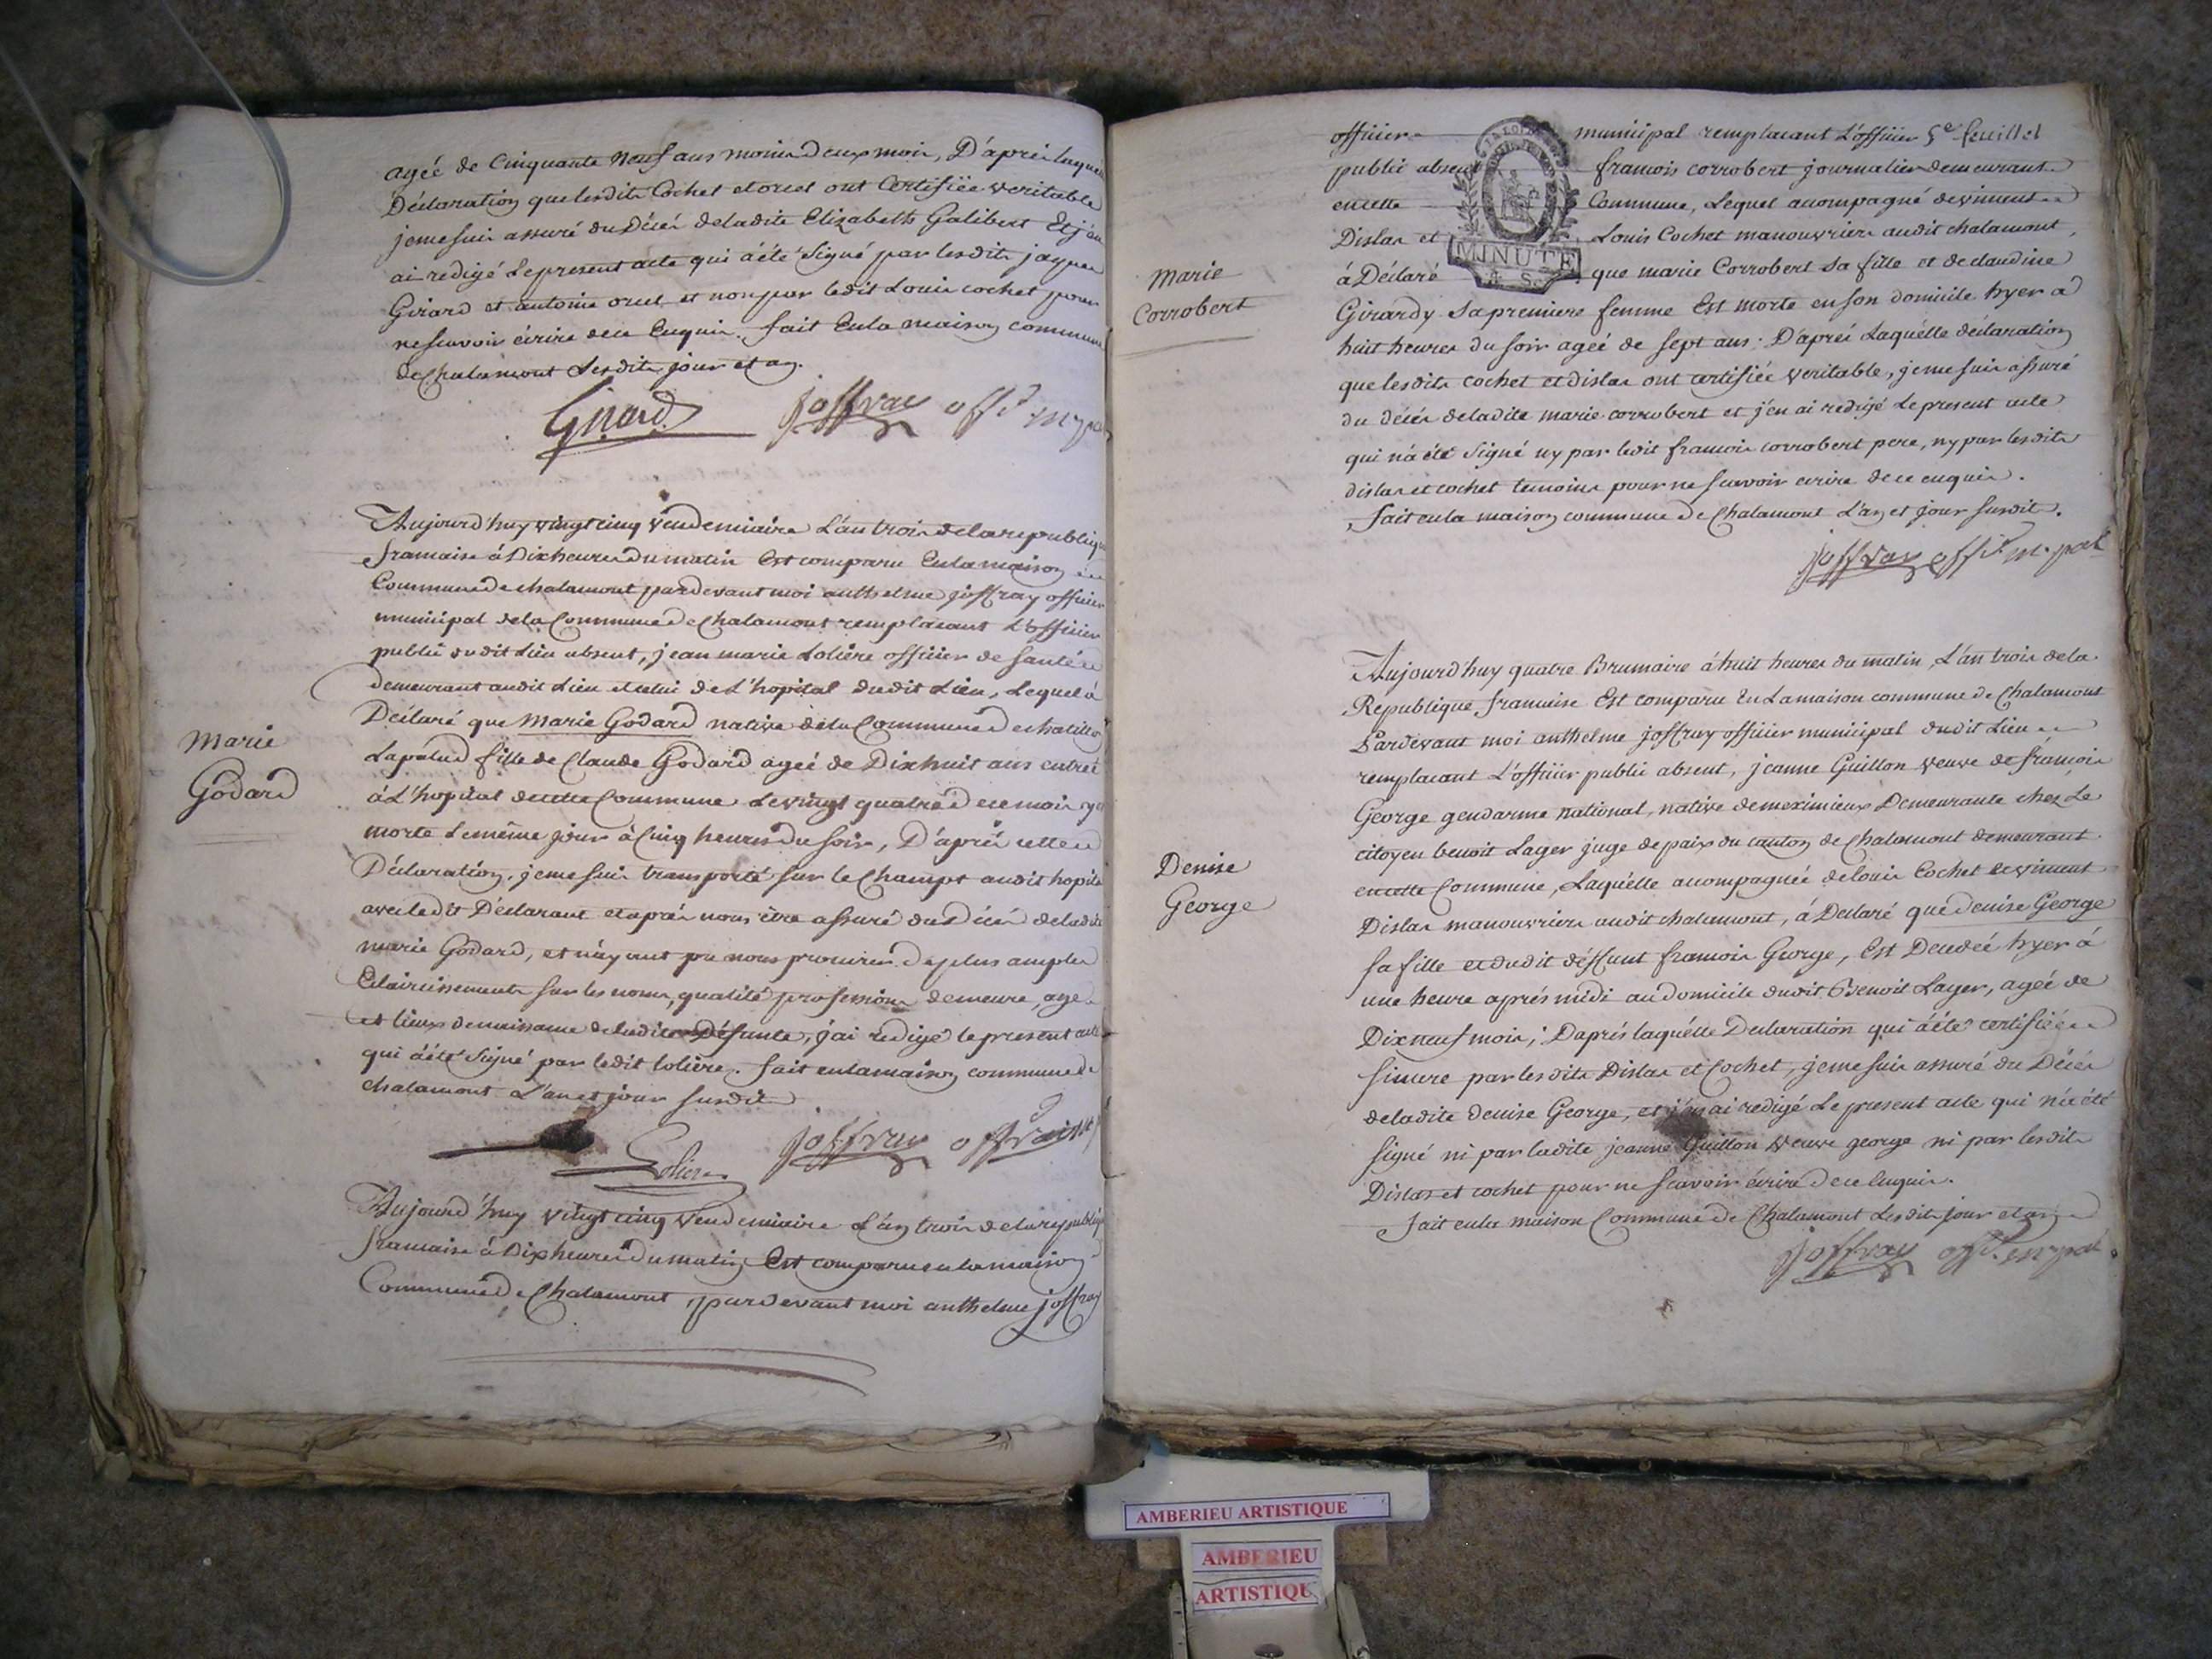 agéé de Cinquante Neuf ans moins deux mois, D'après laquelle
Déclaration que lesdits Cochet et orset ont Certifiée veritable
jeme suis assuré du Décés deladite Elizabeth Galibert Et j'en
ai redigé Le present acte qui à été Signé par lesdits
Girard et antoine orset et non par ledit Louis cochet pour
ne scavoir écrire dece Enquis. fait En la maison commune
de Chalamont Lesdits jour et an.
Girard joffray off.r m.pal
Aujourd'huy vingt cinq Vendemiaire L'an trois dela republique
francaise à Dix heures du matin Est comparu En la maison
Commune de chalamont pardevant moi anthelme joffray officier
municipal dela Commune de Chalamont remplacant L'officier
public dudit Lieu absent, jean marie Loliere officier de santé
demeurant audit Lieu et celui de L'hopital dudit Lieu, Lequel à
Déclaré que Marie Godard native dela Commune de chatillon
Lapalud fille de Claude Godard agéé de Dixhuit ans entréé
à L'hopital decette Commune Le vingt quatre de ce mois
morte Lemême jour à Cinq heures du soir, D'après cette
Déclaration, jeme suis transporté sur le Champs audit hopital
avec ledit Déclarant et après nous être assuré du Décés deladite
marie Godard, et n'ayant pu nous procurer de plus amples
Eclaircissements sur les noms, qualité professions demeure, age
et lieux denaissance deladite Défunte, j'ai redigé le present acte
qui à été Signé par ledit loliere. fait en la maison commune de
chalamont L'an et jour susdits
Marie
Godard
Loliere joffray off
Aujourd'huy vingt cinq Vendemiaire L'an trois dela republique
francaise à Dix heures du matin Est comparu en la maison
Commune de Chalamont, pardevant moi anthelme joffray
officier municipal remplacant L'officier 5e feuillet
public absent francois corrobert journalier demeurant
encette Commune, Lequel acompagné de vincent
Dislas et Louis Cochet manouvriers audit chalamont,
à Déclaré que marie Corrobert sa fille et de claudine
Girardy sa premiere femme Est morte en son domicile hyer à
huit heures du soir agéé de sept ans; D'aprés Laquélle déclaration
que lesdits cochet et dislas ont certifiée veritable, jeme suis assuré
du décés deladite marie corrobert et j'en ai redigé Le present acte
qui n'a été Signé ny par ledit francois corrobert pere, ny par lesdits
dislas et cochet temoins pour ne scavoir ecrire dece enquis.
fait en la maison commune de Chalamont L'an et jour susdit.
Marie
Corrobert
MINUTE
joffray off.r m.pal
Aujourd'huy quatre Brumaire à huit heures du matin, L'an trois dela
Republique francaise Est comparu En La maison commune de Chalamont
Pardevant moi anthelme joffray officier municipal dudit Lieu
remplacant L'officier public absent, jeanne Guillon veuve de francois
George gendarme national, native de meximieux Demeurante chez Le
citoyen benoit Lager juge de paix du canton de Chalamont demeurant
encette Commune, Laquélle acompagnéé delouis Cochet et vincent
Dislas manouvriers audit chalamont, à Déclaré que denise George
sa fille et dudit déffunt francois George, Est Decedéé hyer à
une heure aprés midi au domicile dudit Benoit Lager, agéé de
Dix neuf mois; Daprés laquélle Declaration qui à été certifiéé
sincere par lesdits Dislas et Cochet, jeme suis assuré du Décés
deladite denise George, et j'en ai redigé Le present acte qui n'a été
signé ni par ladite jeanne Guillon veuve george ni par lesdits
Dislas et cochet pour ne scavoir écrire de ce Enquis.
fait en la maison Commune de Chalamont Lesdits jour et an
Denise
George
joffray off.r m.pal
AMBERIEU ARTISTIQUE
AMBERIEU
ARTISTIQU